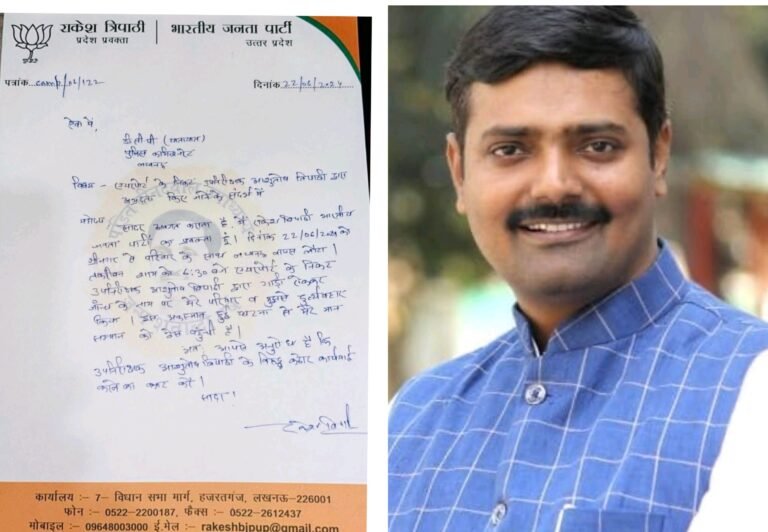 राकेश त्रिपाठी
प्रदेश प्रवक्ता
भारतीय जनता पार्टी
उत्तर प्रदेश
पत्रांक...camp/06/122
दिनांक 22/06/2024
सेवा में,
डी सी पी (यातायात)
पुलिस कमिश्नरेट
लखनऊ
विषय - एयरपोर्ट के निकट उपनिरीक्षक आशुतोष त्रिपाठी द्वारा
अभद्रता किए जाने के संदर्भ में
महोदय
सादर अवगत कराना है, मैं राकेश त्रिपाठी भारतीय
जनता पार्टी का प्रवक्ता हूँ। दिनांक 22/06/2024 को
श्रीनगर से परिवार के साथ लखनऊ वापस लौटा।
शाम को 4:30 बजे एयरपोर्ट के निकट
उपनिरीक्षक आशुतोष त्रिपाठी द्वारा गाड़ी रोककर
जाँच के नाम पर मेरे परिवार व मुझसे दुर्व्यवहार
किया। इस हुई घटना से मेरे मान
सम्मान को ठेस पहुंची है।
अतः आपसे अनुरोध है कि
उपनिरीक्षक आशुतोष त्रिपाठी के विरुद्ध कठोर कार्यवाई
करने का कष्ट करें।
सादर!
कार्यालय :– 7– विधान सभा मार्ग, हजरतगंज, लखनऊ–226001
फोन :– 0522-2200187, फैक्स :– 0522-2612437
मोबाइल :– 09648003000 ई.मेल :– rakeshbjpup@gmail.com